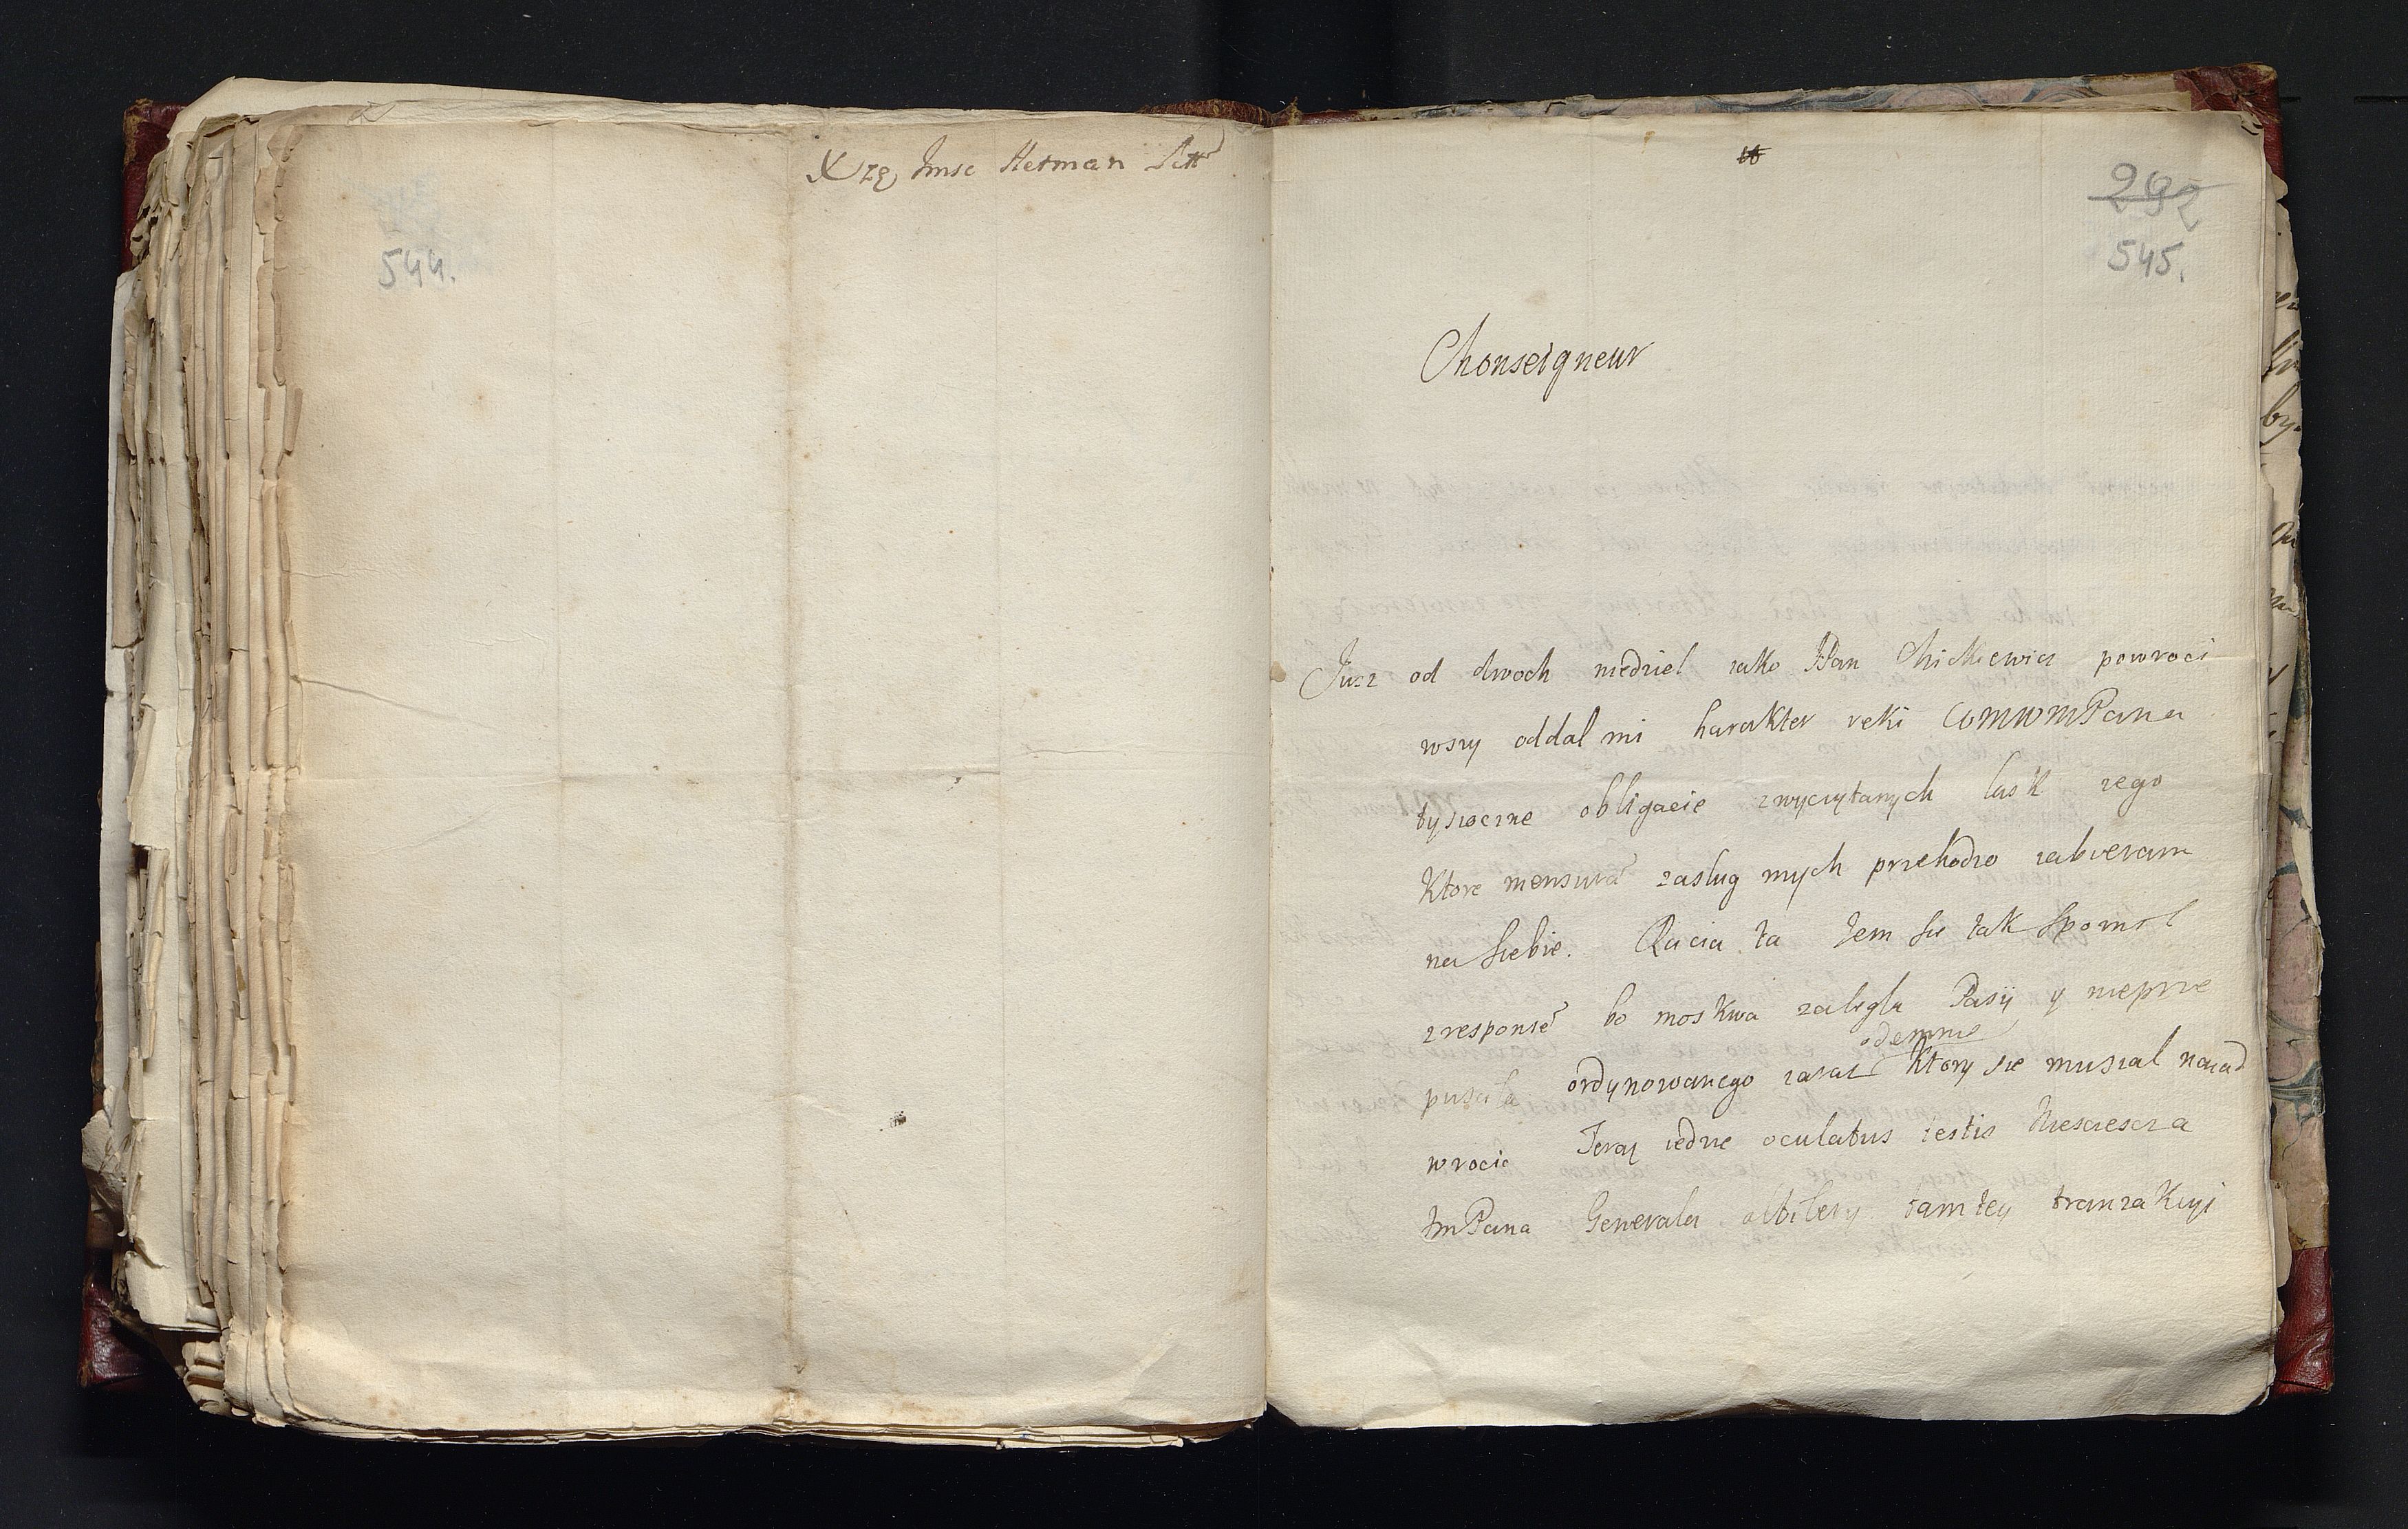 Xzę Jmsc Hetman Litt
544.
292
545.
Monseigneur
Jusz od dwoch niedziel iako JPan Mickiewicz powroci
wszy oddal mi harakter reki WMWMPana
tysioczne obligacie zwyczytanych lask iego
Ktore mensurą zaslug mych przehodzo zabieram
na siebie. Racia ta zem sie tak spoznil
zresponsē bo moskwa zalegla Pasij y nieprze
puscila ordynowanego odemnie zaraz Ktory sie musial nazad
wrocic Teraz iedzie oculatus testis Niesciescza
JmPana Generala altilery tamtey tranzakcyi